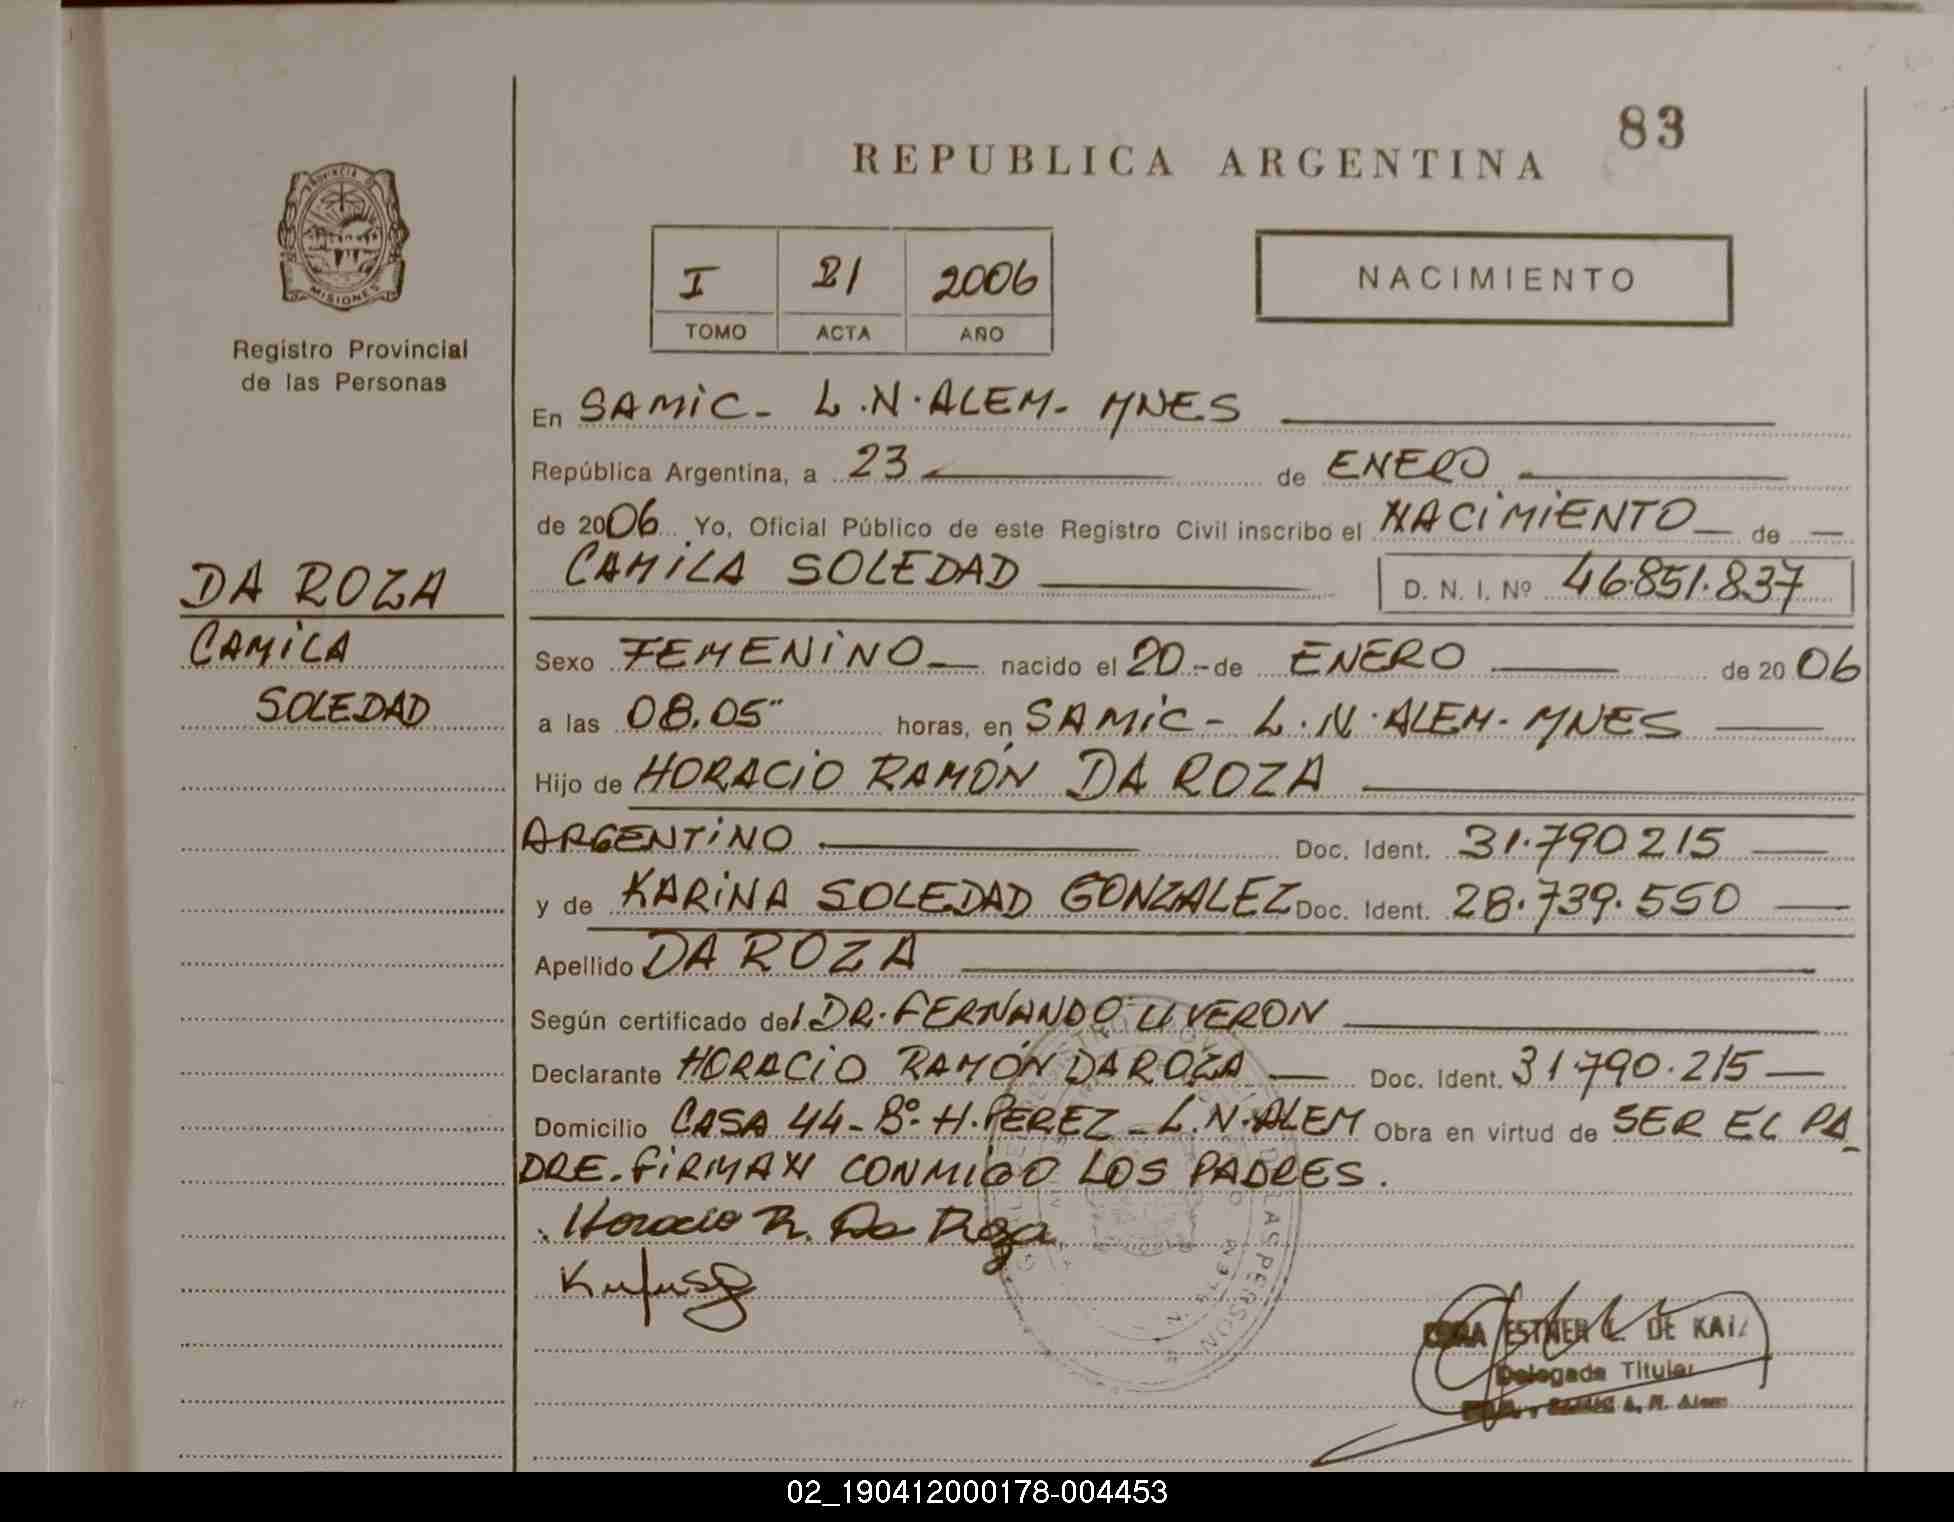 83
REPUBLICA ARGENTINA
PROVINCIA DE
MISIONES
Registro Provincial
de las Personas
I 81 2006
TOMO ACTA AÑO
NACIMIENTO
En SAMIC - L.N.ALEM - MNES
República Argentina, a 23 de ENERO
de 2006 Yo, Oficial Público de este Registro Civil inscribo el NACIMIENTO de
CAMILA SOLEDAD D. N. I. Nº 46.851.837
DA ROZA
CAMILA
SOLEDAD
Sexo FEMENINO nacido el 20 - de ENERO de 2006
a las 08.05" horas, en SAMIC - L.N.ALEM - MNES
Hijo de HORACIO RAMÓN DA ROZA
ARGENTINO Doc. Ident. 31.790215
y de KARINA SOLEDAD GONZALEZ Doc. Ident. 28.739.550
Apellido DA ROZA
Según certificado del DR. FERNANDO VERON
Declarante HORACIO RAMÓN DA ROZA Doc. Ident. 31.790.215
Domicilio CASA 44 - Bº. H. PEREZ - L.N.ALEM Obra en virtud de SER EL PA-
DRE. FIRMAN CONMIGO LOS PADRES.
Horacio R. Da Roza
ESTHER DE
Delegada Titular
Alem
02_190412000178-004453